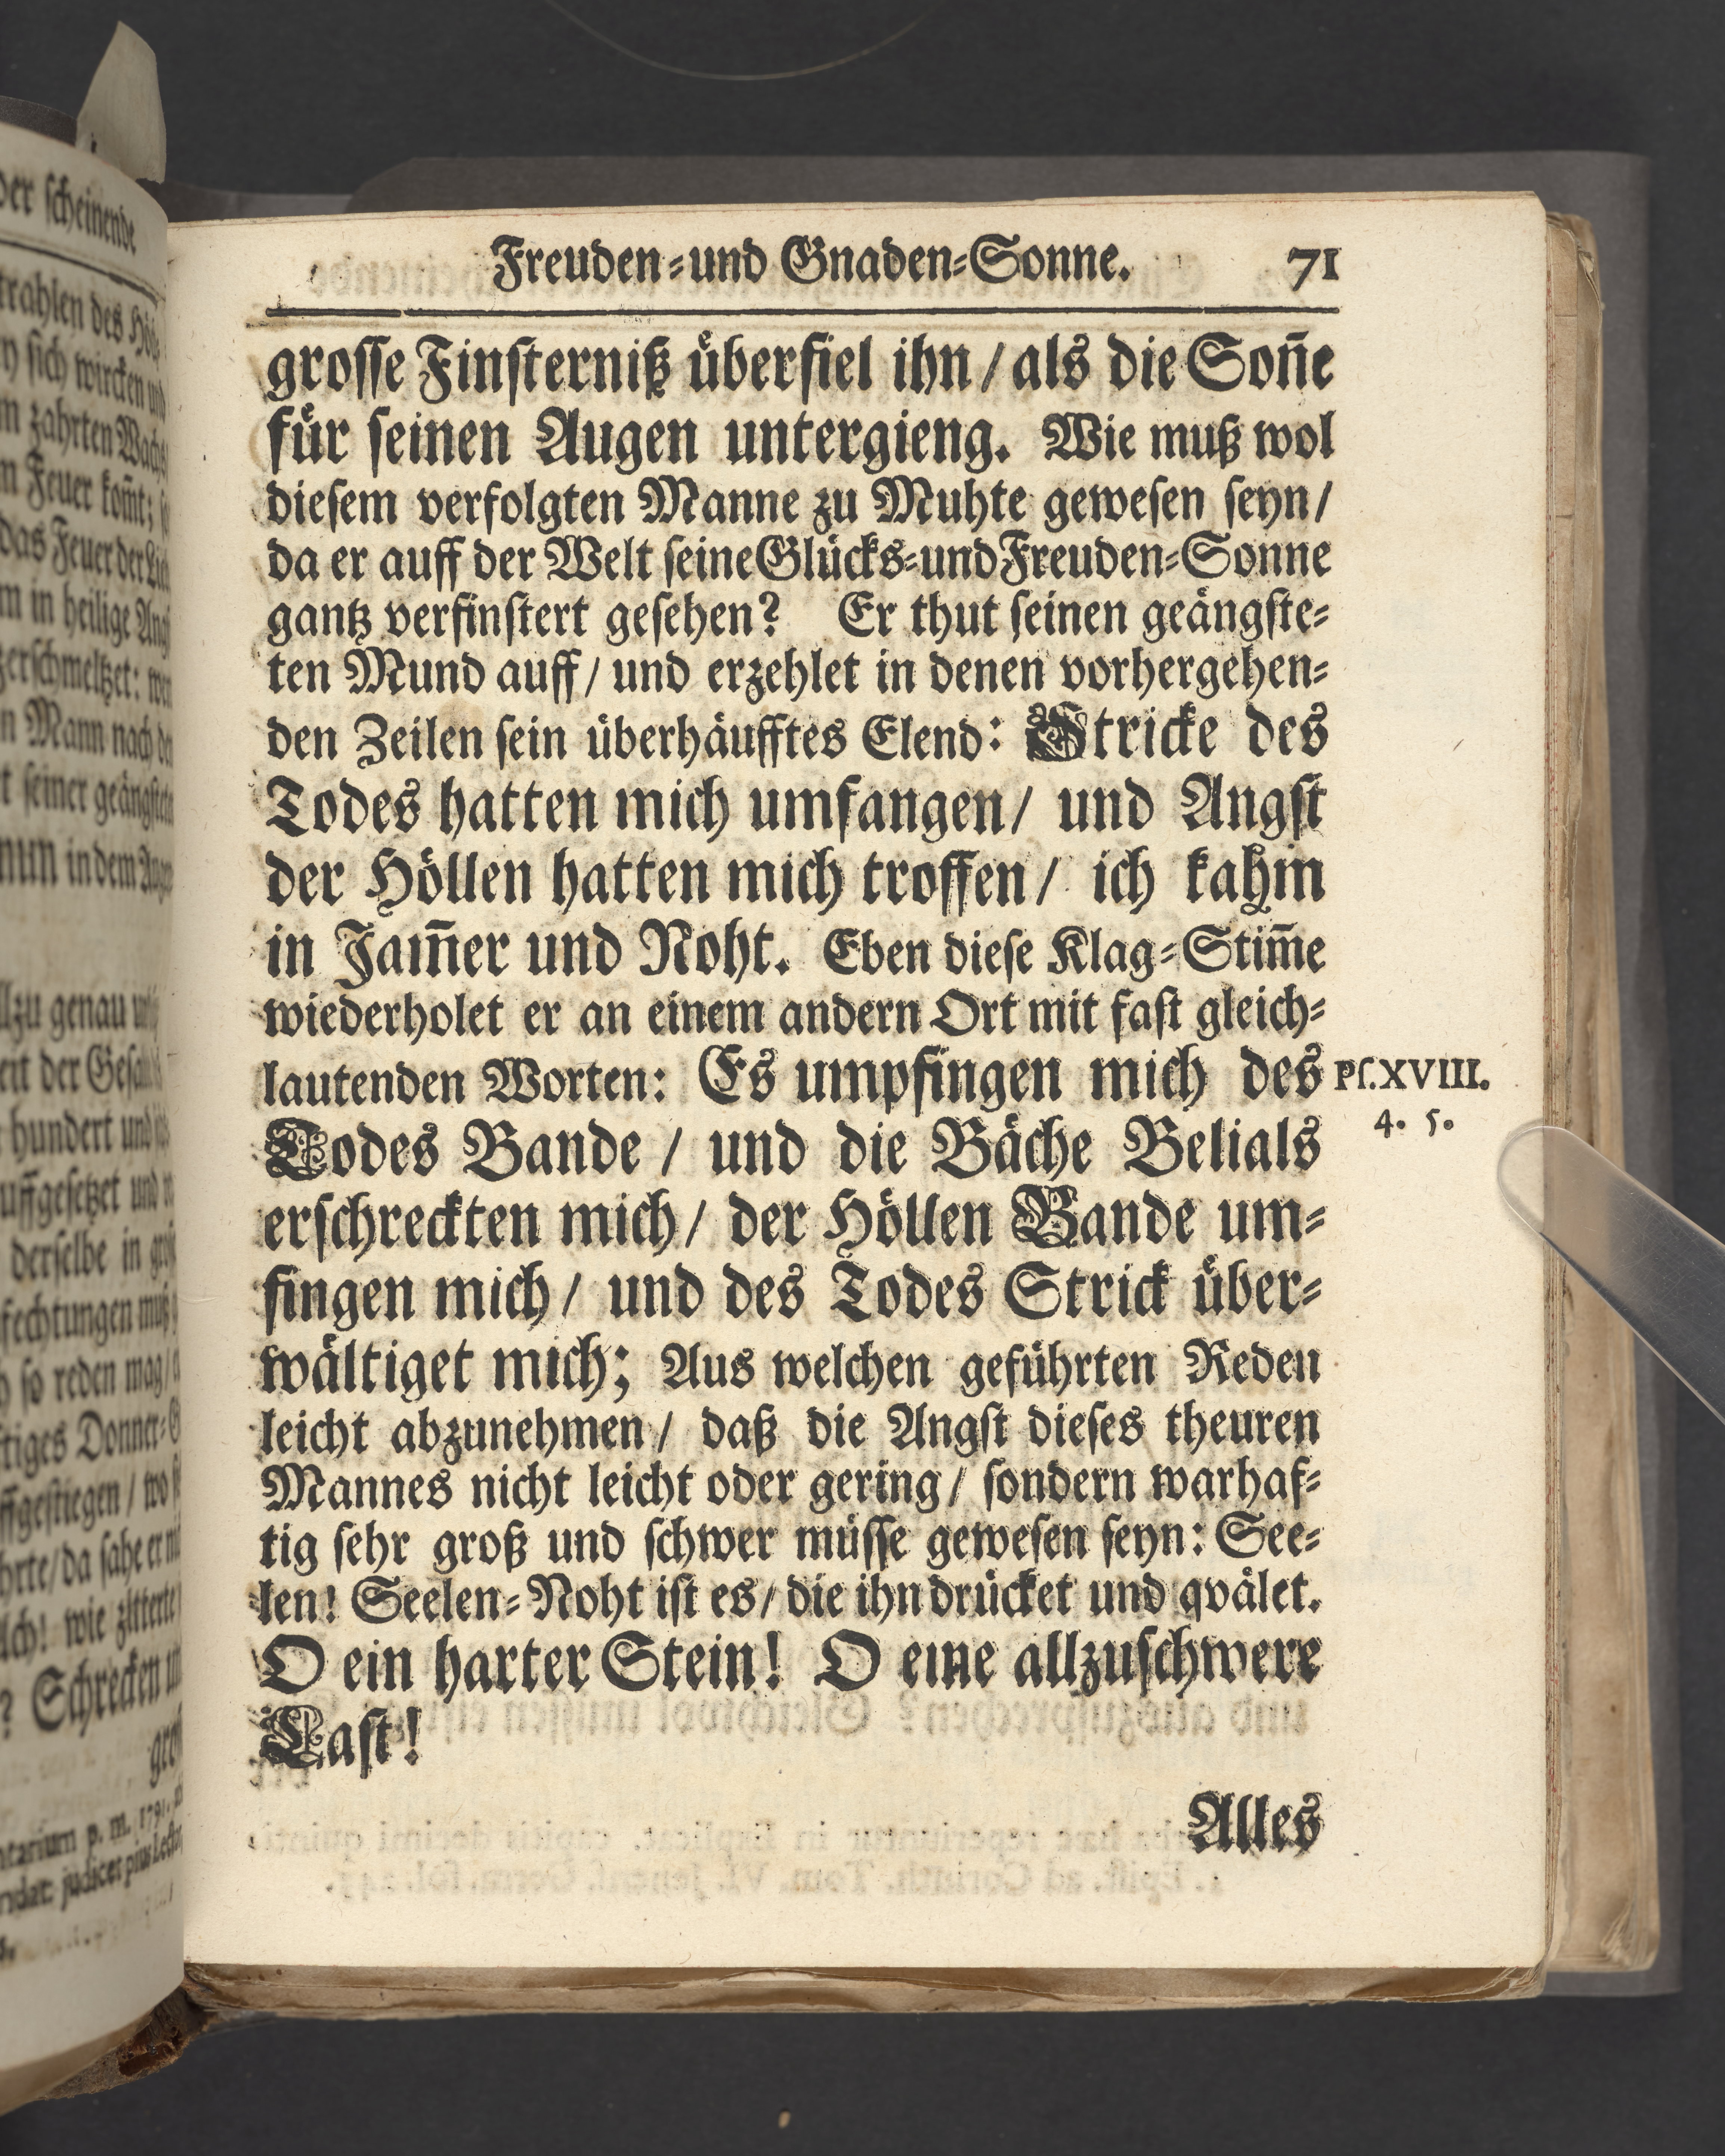 Freuden-und Gnaden-Sonne. 71
grosse Finsterniß überfiel ihn / als die Soñe
für seinen Augen untergieng. Wie muß wol
diesem verfolgten Manne zu Muhte gewesen seyn/
da er auff der Welt seine Glücks-und Freuden-Sonne
gantz verfinstert gesehen? Er thut seinen geängste-
ten Mund auff / und erzehlet in denen vorhergehen-
den Zeilen sein überhäufftes Elend: Stricke des
Todes hatten mich umfangen/ und Angst
der Höllen hatten mich troffen / ich kahm
in Jam̃er und Noht. Eben diese Klag-Stim̃e
wiederholet er an einem andern Ort mit fast gleich-
lautenden Worten: Es umpfingen mich des
Ps. XVIII.
4. 5.
Todes Bande / und die Bäche Belials
erschreckten mich / der Höllen Bande um-
fingen mich / und des Todes Strick über-
wältiget mich; Aus welchen geführten Reden
leicht abzunehmen / daß die Angst dieses theuren
Mannes nicht leicht oder gering / sondern warhaf-
tig sehr groß und schwer müsse gewesen seyn: See-
len! Seelen-Noht ist es / die ihn drücket und qvälet.
O ein harter Stein! O eine allzuschwere
Last!
Alles
der scheinende
zahrten
Feuer kom̃t;
das Feuer der
in heilige
zerschmeltzet:
Mann nach
seiner
in dem
genau
der
hundert und
auffgesetzet und
derselbe in
so reden mag /
Donner-
da sahe er
Ach! wie zitterte
? Schrecken
p. m. 1791.
judicet pius